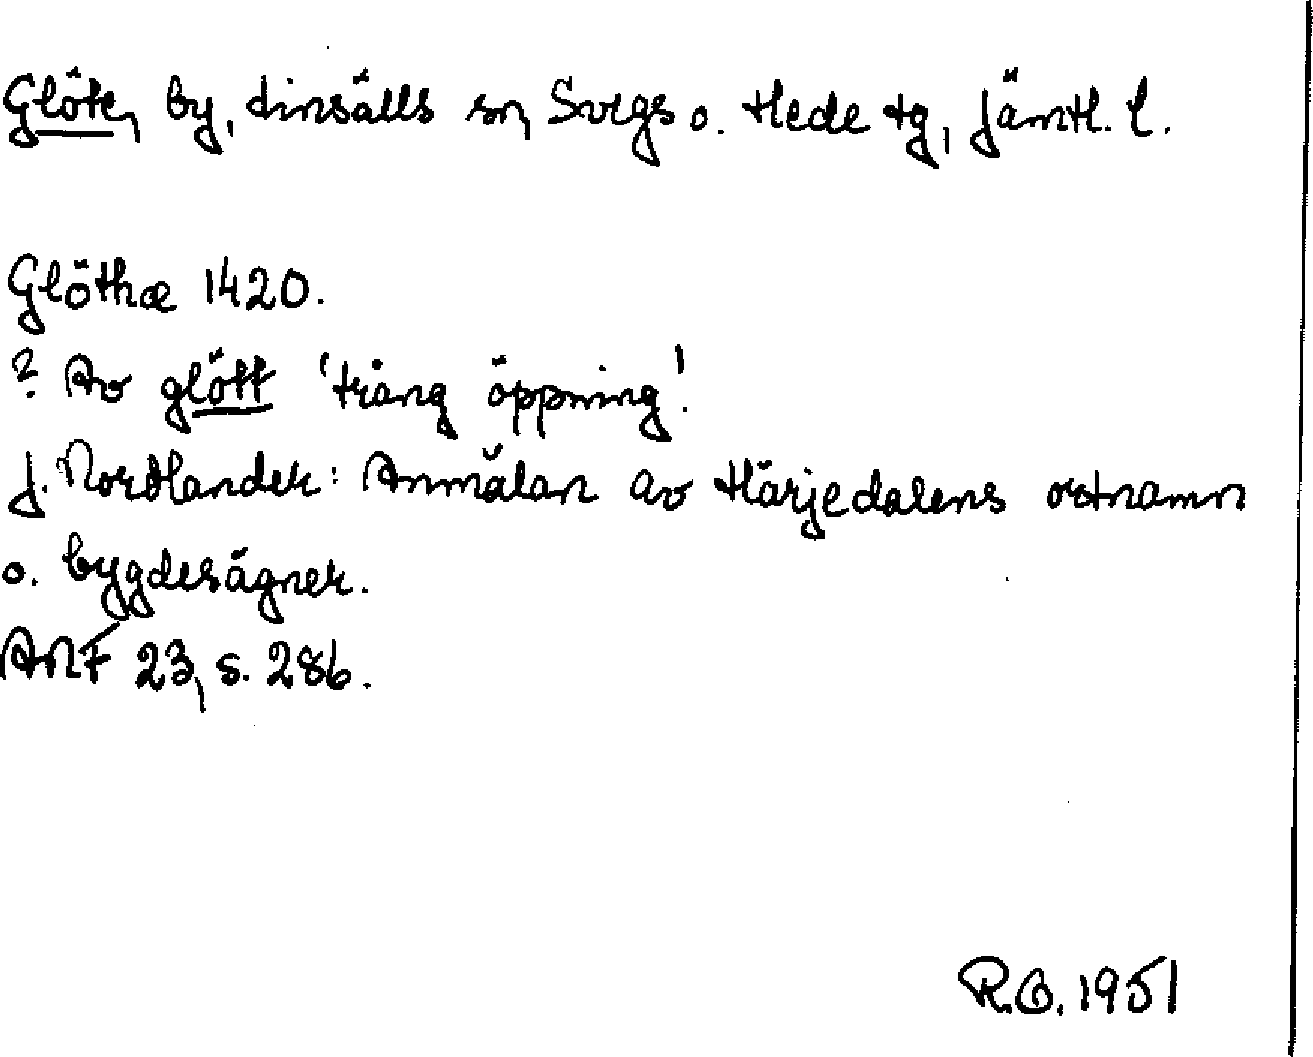 Glöte, by, Linsälls sn, Svegs o. Hede tg, Jämtl. l.
Glöthæ 1420.
? Av glött 'trång öppning'.
J. Nordlander: Anmälan av Härjedalens ortnamn
o. bygdesägner.
ANF 23, s. 286.
R.O. 1951